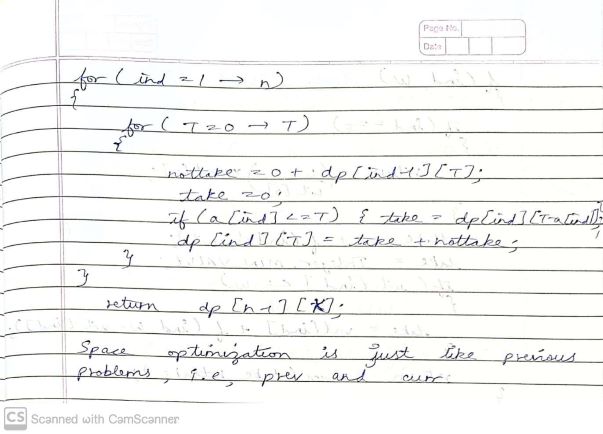 Page No.
Date
for ( ind = 1 → n)
{
for ( T = 0 → T)
{
nottake = 0 + dp[ind-1][T];
take = 0;
if (a[ind] <= T) { take = dp[ind][T-a[ind]];
dp[ind][T] = take + nottake;
}
}
return dp [n-1] [K];
Space optimization is just like previous
problems, i.e, prev and curr.
CS Scanned with CamScanner